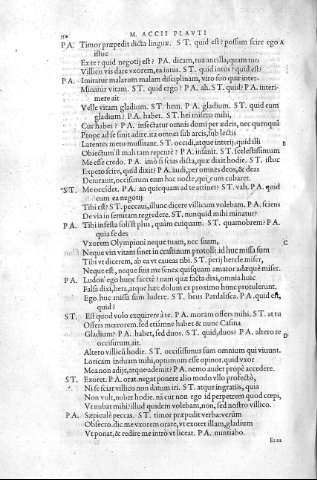 M. ACCII PLAVTI
PA. Timor præpedit dicta linguæ. ST. quid est? possum scire ego A
istuc
Ex te? quid negotij est? PA. dicam, tua ancilla, quam tuo
Villico vis dare vxorem, ea intus. ST. quid intus? quid est?
PA. Imitatur malarum malam disciplinam, viro suo quæ inter-
Minatur vitam. ST. quid ergo? PA. ah. ST. quid? PA. interi-
mere ait
Velle vitam gladium. ST. hem. PA. gladium. ST. quid eum
gladium? PA. habet. ST. hei misero mihi,
Cur habet? PA. insectatur omneis domi per ædeis, nec quenquā
Prope ad se sinit adire. ita omneis sub arcis, sub lectis
Latentes metu mussitant. ST. occidi, atque interij, quid illi B
Obiectum st mali tam repente? PA. insanit. ST. scelestissimum
Me esse credo. PA. imò si scias dicta, quæ dixit hodie. ST. istuc
Expeto scire, quid dixit? PA. audi, per omneis deos, & deas
Deieravit, occisurum eum hac nocte, qui cum cubaret.
ST. Me occidet. PA. an quipiam ad te attinet? ST. vah. PA. quid
cum ea negotij
Tibi est? ST. peccaui, illunc dicere villicum volebam. PA. sciens
De via in semitam regredere. ST. nunquid mihi minatur?
PA. Tibi infesta soli st plus, quàm cuiquam. ST. quamobrem? PA.
quia se des
Vxorem Olympioni neque tuam, nec suam, C
Neque viri vitam sinet in crastinum protolli: id huc missa sum
Tibi vt dicerem, ab ea vt caueas tibi. ST. perij hercle miser,
Neque est, neque fuit me senex quisquam amator adæquè miser.
PA. Ludon' ego hunc facetè? nam quæ facta dixi, omnia huic
Falsa dixi, hera, atque hæc dolum ex proximo hunc protulerunt.
Ego huc missa sum ludere. ST. heus Pardalisca. PA. quid est,
quid?
ST. Est quod volo exquirere à te. PA. moram offers mihi. ST. at tu
Offers mœrorem. sed etiamne habet & nunc Casina
Gladium? PA. habet, sed duos. ST. quid, duos? PA. altero te D
occisurum ait.
Altero villicū hodie. ST. occisissimus sum omnium qui viuunt.
Loricam induam mihi, optimum esse opinor. quid vxor
Mea non adijt, atque ademit? PA. nemo audet prope accedere.
ST. Exoret. PA. orat. negat ponere alio modo vllo profectò,
Ni se sciat villico non datum iri. ST. atqui ingratiis, quia
Non volt, nubet hodie. nā cur non ego id perpetrem quod cœpi,
Vt nubat mihi? illud quidem volebam, non, sed nostro villico.
PA. Sæpiculè peccas. ST. timor præpedit verba: verùm
Obsecro, dic me vxorem orare, vt exoret illam, gladium
Vt ponat, & redire me intrò vt liceat. PA. nuntiabo.